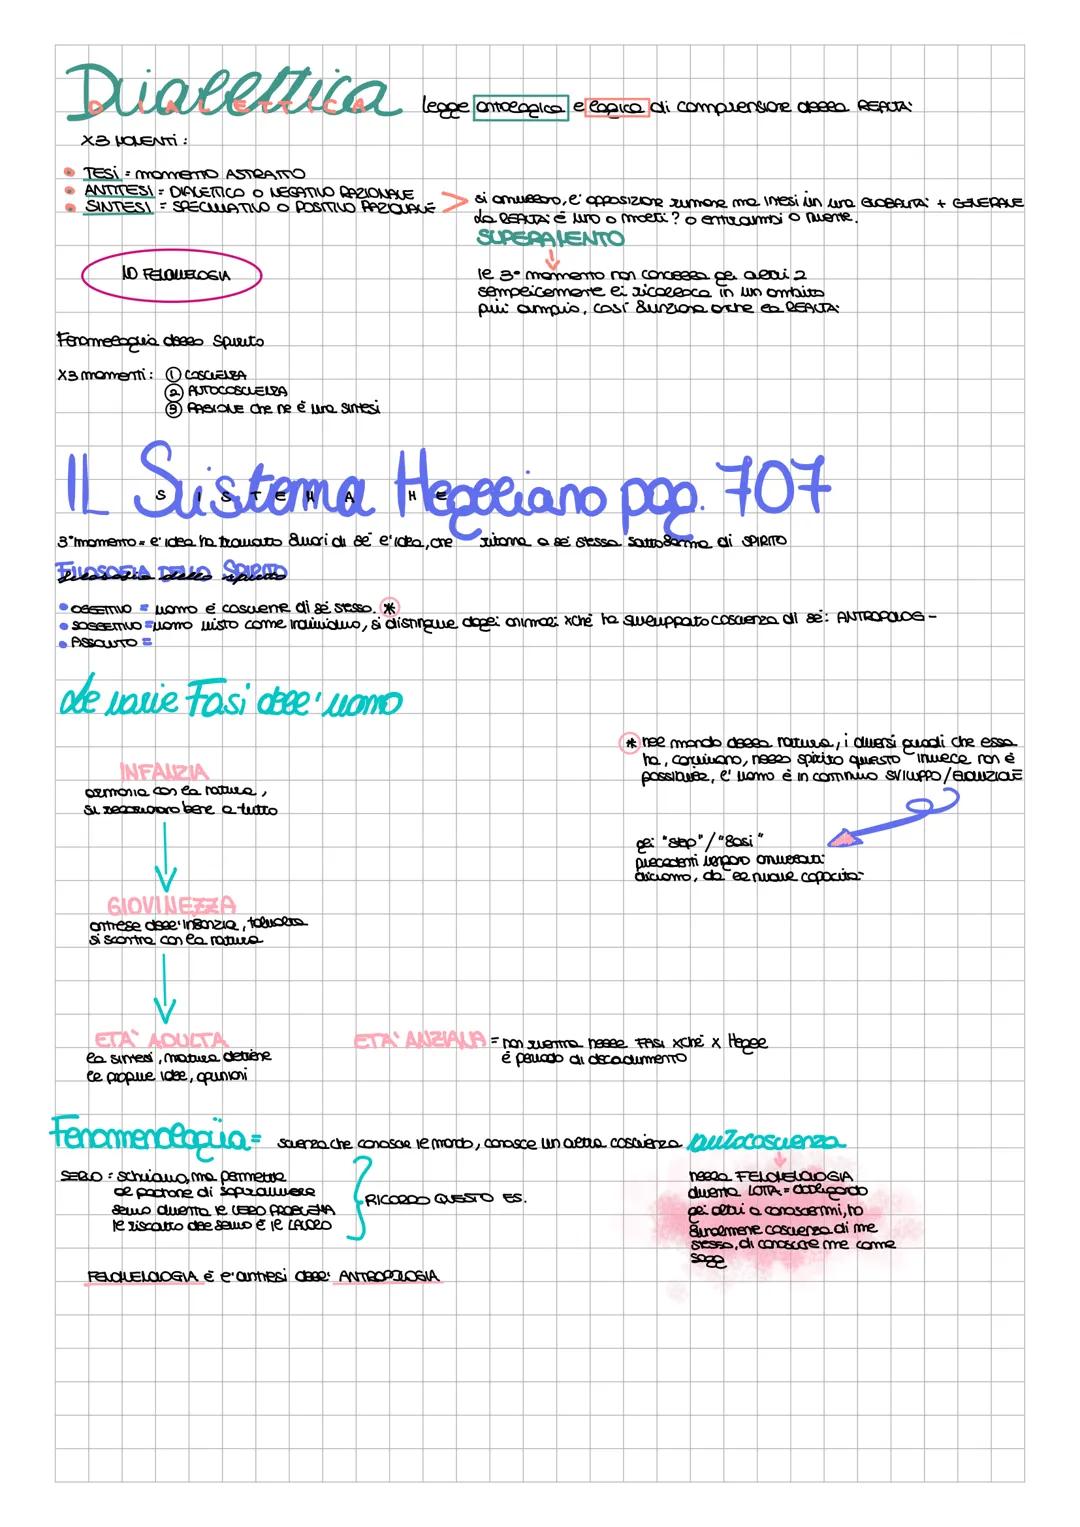 Dialettica
DIALETTICA
legge ontologica e logica di comprensione della REALTA'
X3 MOMENTI:
• TESI = momento ASTRATTO
• ANTITESI = DIALETTICO O NEGATIVO RAZIONALE
• SINTESI = SPECULATIVO O POSITIVO RAZIONALE
> si annullano, l'opposizione rimane ma intesi in una GLOBALITA' + GENERALE
la REALTA' è uno o molti? o entrambi o niente.
SUPERAMENTO
le 3° momento non cancella gli altri 2
semplicemente li ricolloca in un ambito
più ampio, così funziona anche la REALTA'
LO FENOMENOLOGIA
Fenomenologia dello Spirito
X3 momenti: ① COSCIENZA
② AUTOCOSCIENZA
③ RAGIONE che ne è una sintesi
IL Sistema Hegeliano pag. 707
SISTEMA HE
3° momento = l'idea ha trovato fuori di sé l'idea, che ritorna a sé stessa sotto forma di SPIRITO
FILOSOFIA DELLO SPIRITO
filosofia dello spirito
• OGGETTIVO = uomo è cosciente di sé stesso. *
• SOGGETTIVO = uomo visto come individuo, si distingue dagli animali xché ha sviluppato coscienza di sé: ANTROPOLOG-
• ASSOLUTO =
Le varie Fasi dell'uomo
* nel mondo della natura, i diversi gradi che essa
ha, convivono, nello spirito questo invece non è
possibile, l'uomo è in continuo SVILUPPO/EVOLUZIONE
gli "step"/"fasi"
precedenti vengono annullati
diciamo, da le nuove capacità
INFANZIA
armonia con la natura,
si relazionano bene a tutto
GIOVINEZZA
antitesi dell'infanzia, talvolta
si scontra con la natura
ETA' ADULTA
la sintesi, matura detiene
le proprie idee, opinioni
ETA' ANZIANA = non rientra nelle FASI xché x Hegel
è periodo di decadimento
Fenomenologia = scienza che conosce il mondo, conosce un'altra coscienza autocoscienza
SERVO = schiavo, ma permette
al padrone di sopravvivere
servo diventa il VERO PROBLEMA
le riscatto del servo è il LAVORO
RICORDO QUESTO ES.
nella FENOMENOLOGIA
diventa LOTTA = obbligando
gli altri a conoscermi, ho
finalmente coscienza di me
stesso, di conoscere me come
sogg
FENOMENOLOGIA è l'antitesi dell' ANTROPOLOGIA